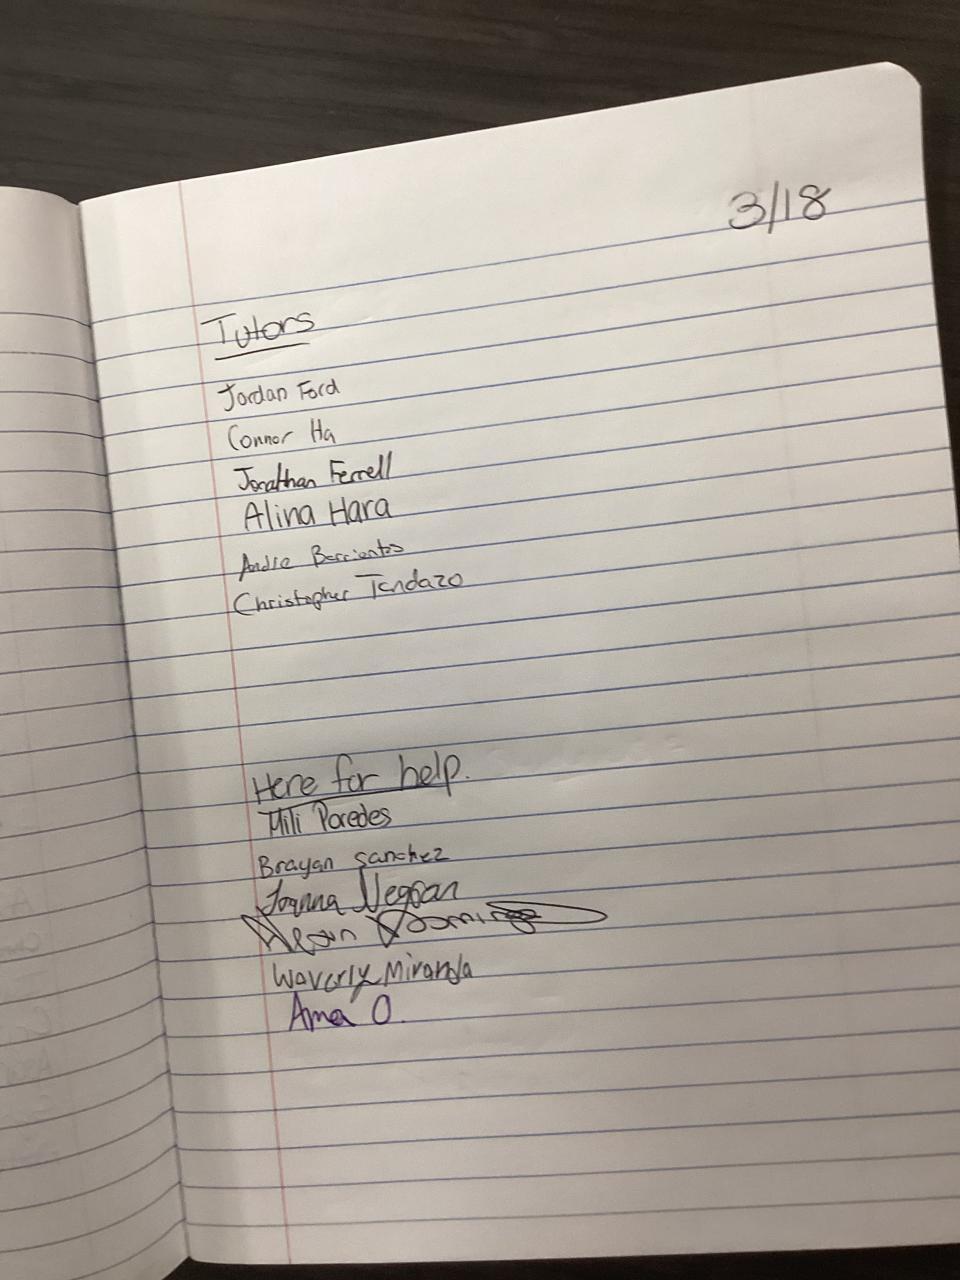 3/18
Tutors
Jordan Ford
Connor Ha
Jonathan Ferrell
Alina Hara
Andre Barrientos
Christopher Tendazo
Here for help.
Mili Paredes
Brayan Sanchez
Joanna
Waverly Miranda
Ama O.